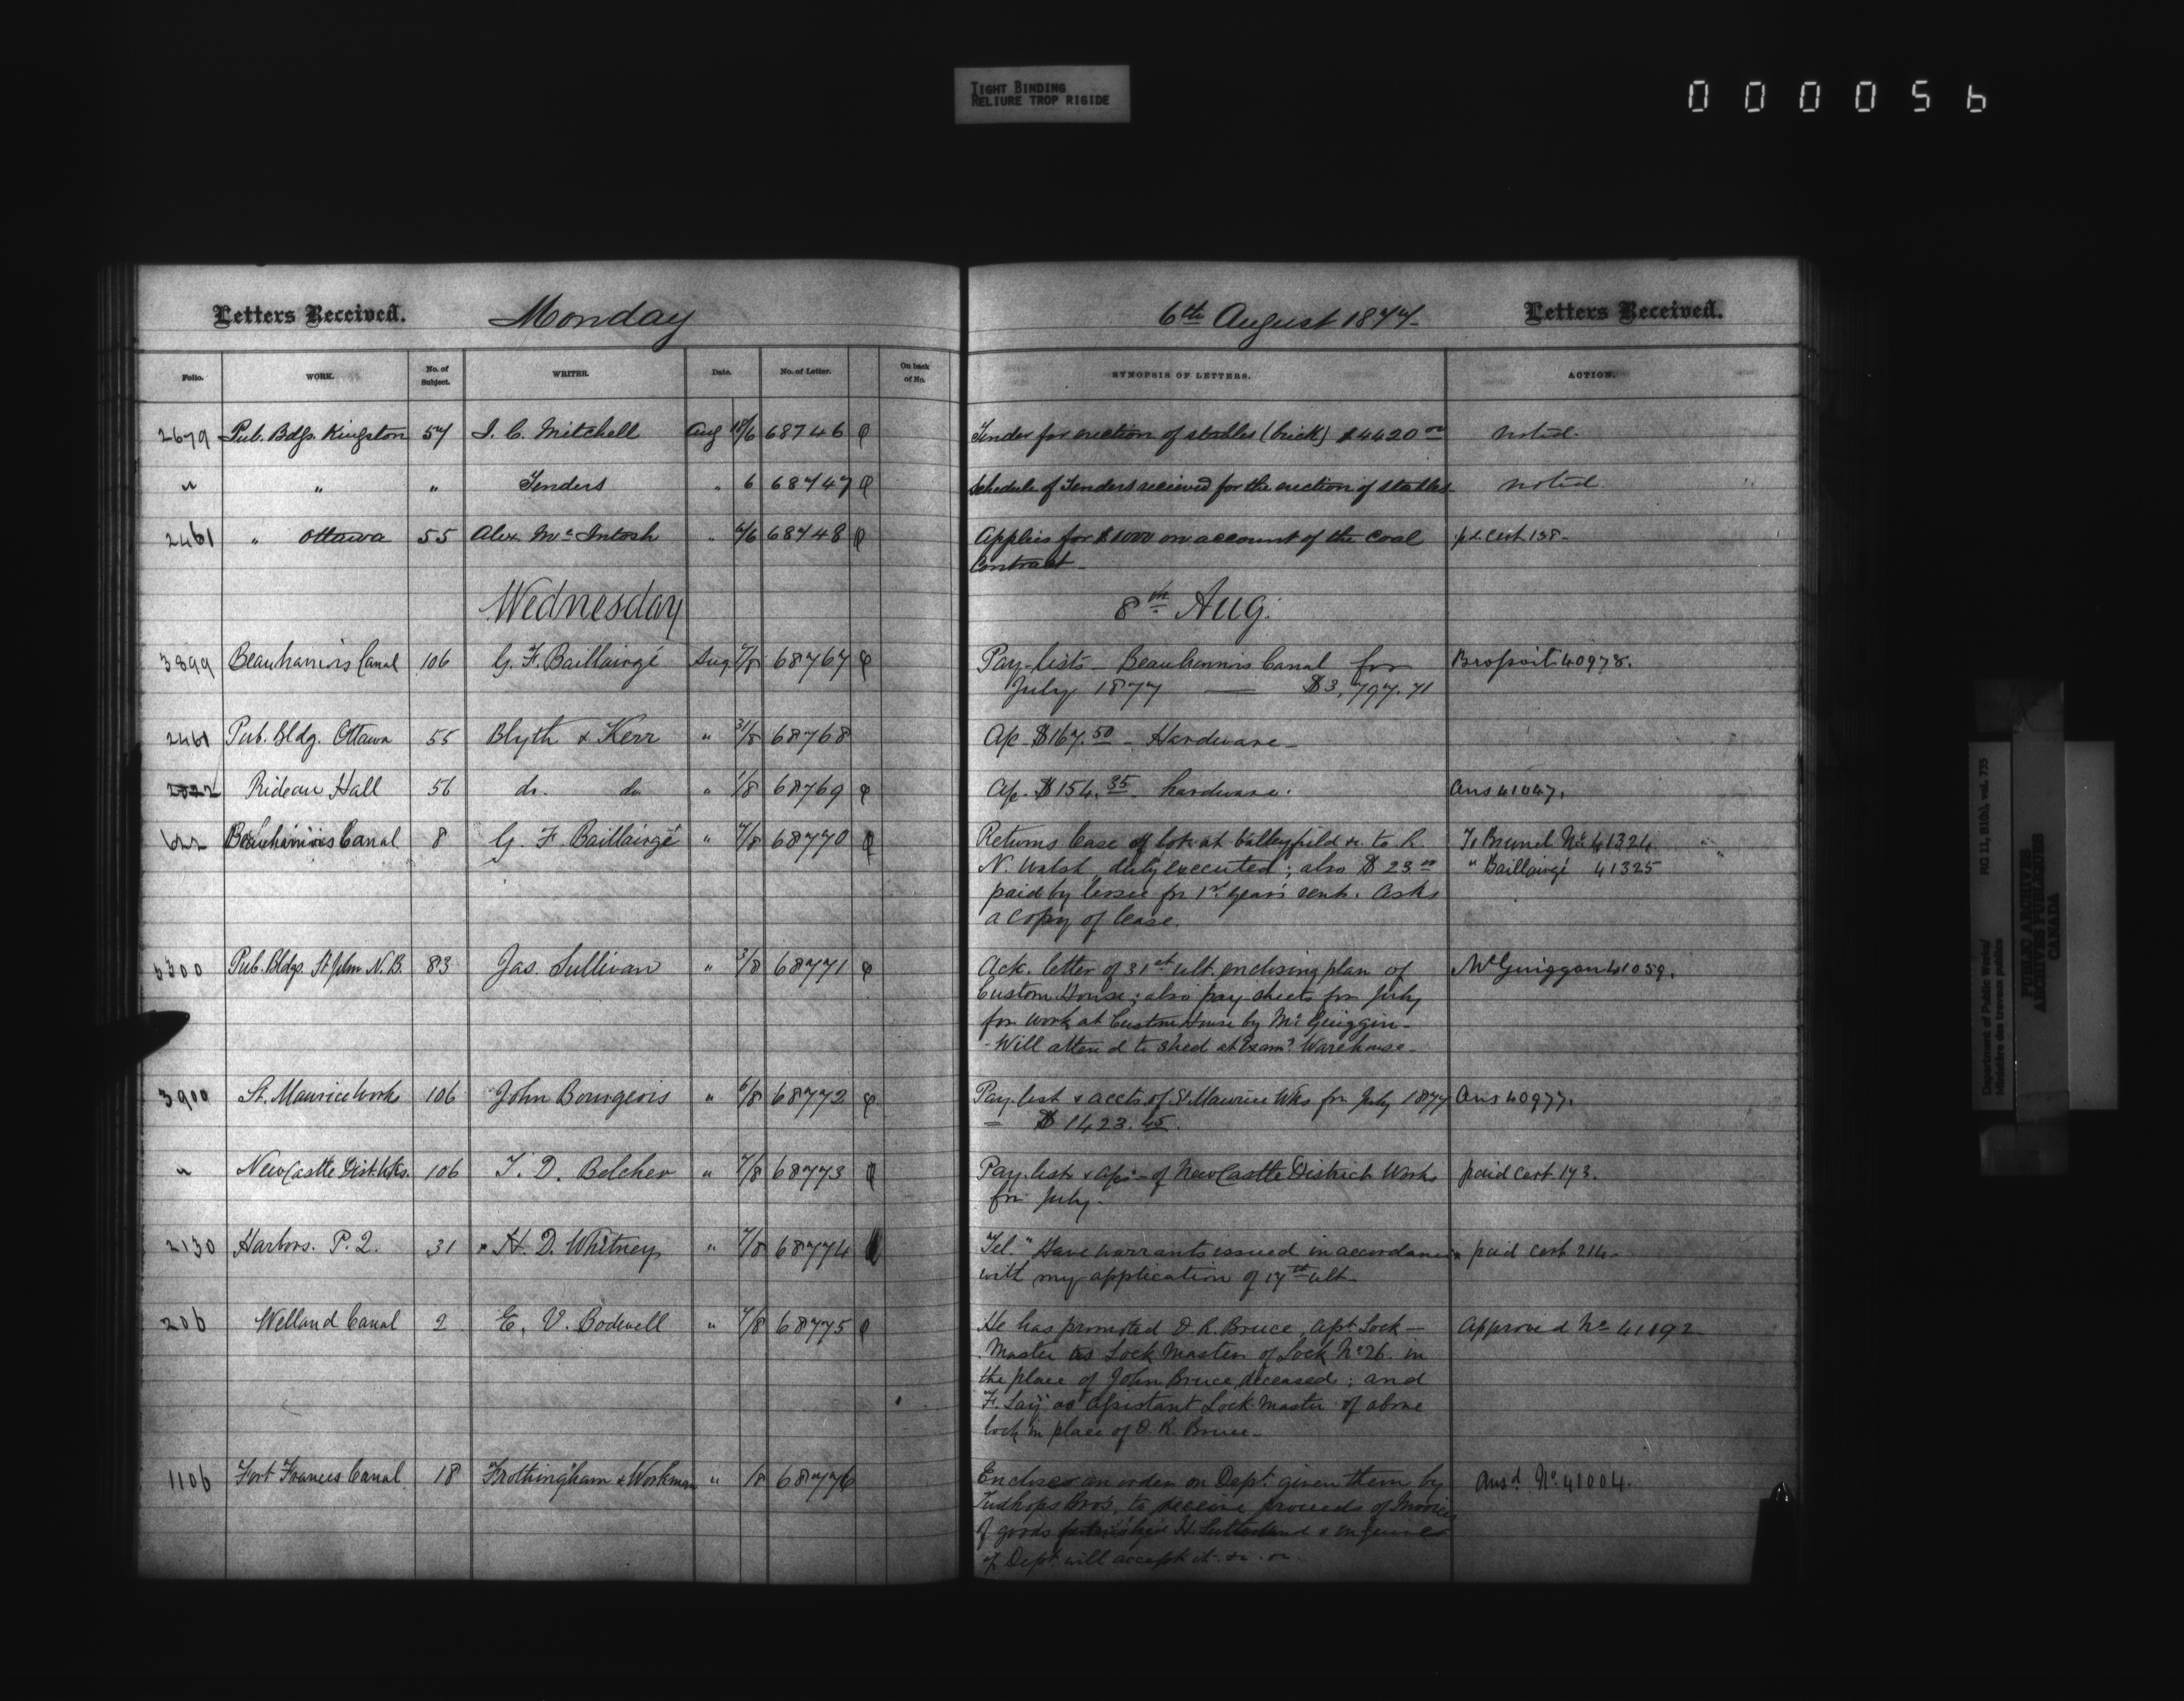 TIGHT BINDING
RELIURE TROP RIGIDE
000056
Letters Received. Monday 6th August 1877 Letters Received.
Folio. WORK. No. of Subject. WRITER. Date. No. of Letter. On back of No. SYNOPSIS OF LETTERS. ACTION.
2679 Pub. Bdgs. Kingston 57 J. C. Mitchell Aug 68746 Tender for erection of stables (brick) $4420 00 noted.
" " " Tenders " 6 68747 Schedule of Tenders recieved for the erection of stables noted
2461 " Ottawa 55 Alex McIntosh " 6/6 68748 Applies for $1000 on account of the Coal pd. Cert 138-
Contract-
Wednesday 8th Aug.
3899 Beauharnois Canal 106 G. F. Baillairgé Aug 7/8 68767 Pay-lists - Beauharnois Canal for 40978.
July 1877 — $3,797.71
2461 Pub. Bldg. Ottawa 55 Blyth & Kerr " 31/8 68768 Ap $167.50 - Hardware-
2522 Rideau Hall 56 do. do " 1/8 68769 Ap. $154.35 - hardware. Ans 41047.
622 Beauharnois Canal 8 G. F Baillairgé " 7/8 68770 Returns lease of lot at Valleyfield &c. to R. To Brunel No. 41324
N. Walsh duly executed; also $23 00 " Baillairgé 41325
paid by lessee for 1st year's rent. Asks
a copy of lease.
Pub. Bldgs. St John N.B. 83 Jas. Sullivan " 3/8 68771 Ack. letter of 31st ult. enclosing plan of McGuiggan 41059.
Custom House; also pay-sheets for July
for work at Custom House by Mr. Guiggin-
- Will attend to shed at Exam? Warehouse-
3900 St. Maurice Works 106 John Bourgeois " 6/8 68772 Pay-list & accts. of St Maurice Wks for July 1877 Ans 40977.
- $1423.45.
" NewCastle Dist. Wks. 106 T. D. Belcher " 7/8 68773 Pay-list & aps - of NewCastle District Works paid Cert 173.
for July.
2130 Harbors. P. Q. 31 H. D. Whitney " 7/8 68774 Tel. "Have warrants issued in accordance paid cert 214-
with my application of 17th ult-
206 Welland Canal 2 E. V. Bodwell " 7/8 68775 He has promoted D. R. Bruce, asst. Lock- Approved No 41192
Master as Lock Master of Lock No 26. in
the place of John Bruce deceased; and
F. as Assistant Lock Master of above
lock in place of D. R. Bruce-
1106 Fort Frances Canal 18 Frothingham & Workman " /8 68776 Encloses an order on Dept. given them by Ansd. No. 41004.
Bros. to receive proceeds of Invoice
of goods H. Sutherland & enquires
if Dept. will accept it. &c.
RG 11, B1(b), vol. 735
Department of Public Works/
Ministère des travaux publics
PUBLIC ARCHIVES
ARCHIVES PUBLIQUES
CANADA